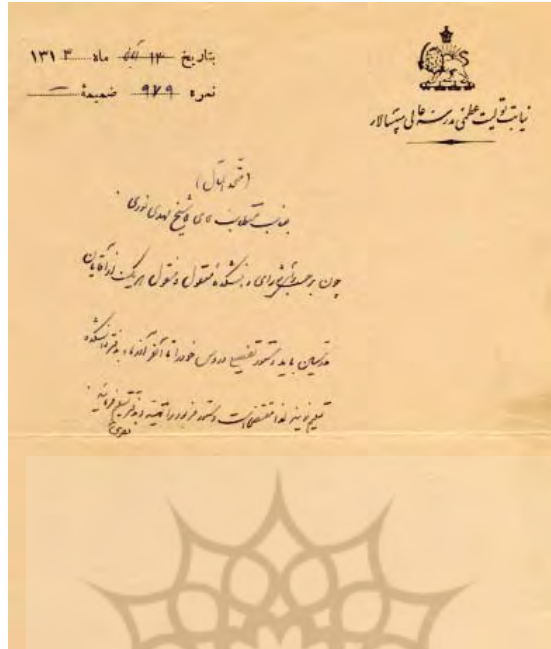 نیابت تولیت عظمی مدرسه عالی سپهسالار
بتاریخ ۱۳ آبان ماه ۱۳۱۳
نمره ۹۷۹ ضمیمهٔ —
(متحدالمآل)
جناب مستطاب آقای شیخ مهدی نوری
چون برحسب رأی شورای دانشکدهٔ معقول و منقول هر یک از آقایان
مدرسین باید دستور تفصیلی دروس خود را تا آخر آذرماه به دفتر دانشکده
تسلیم نمایند لذا مقتضی است دستور مزبور را تهیه و به دفتر تسلیم فرمائید